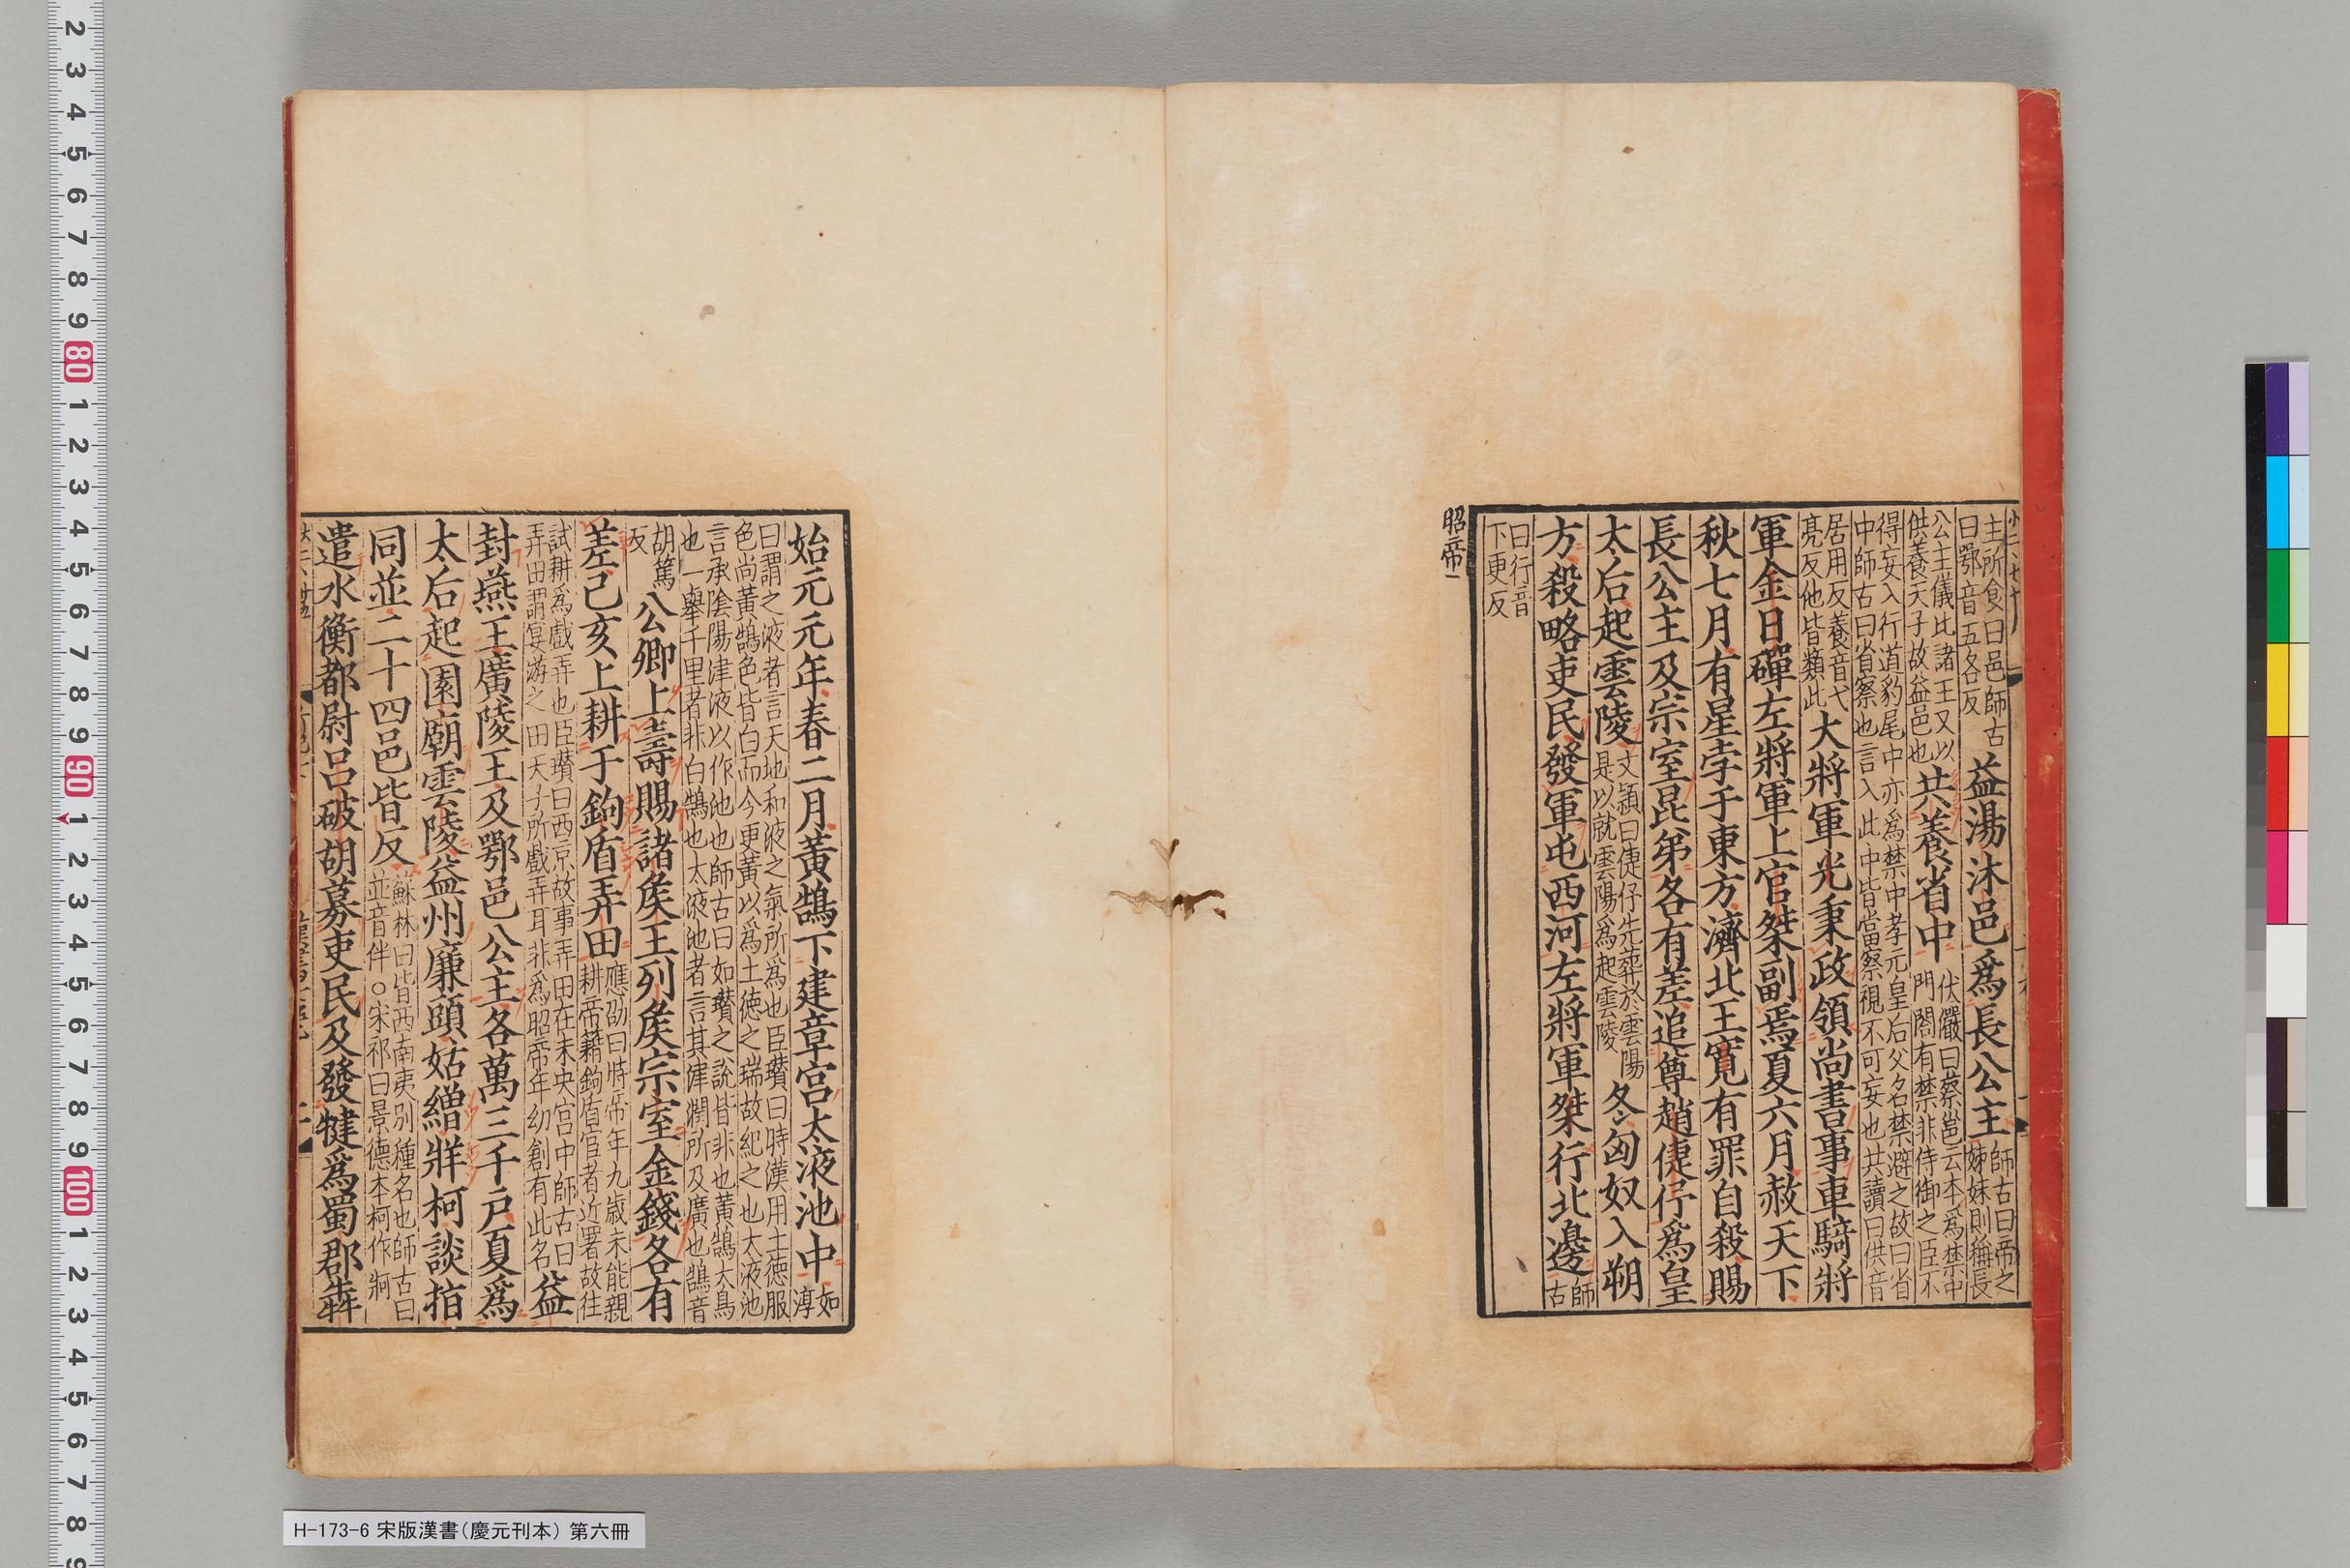 主所食曰邑師古
曰鄂音五各反
益湯沐邑爲長公主
師古曰帝之
姊妹則稱長
公主儀比諸王又以
供養天子故益邑也
共養省中
伏儼曰蔡邕云本爲禁中
門閤有禁非侍御之臣不
得妄入行道豹尾中亦爲禁中孝元皇后父名禁避之故曰省
中師古曰省察也言入此中皆當察視不可妄也共讀曰供音
居用反養音弋
亮反他皆類此
大將軍光秉政領尚書事車騎將
軍金日磾左將軍上官桀副焉夏六月赦天下
秋七月有星孛于東方濟北王寬有罪自殺賜
長公主及宗室昆弟各有差追尊趙倢伃爲皇
太后起雲陵
文頴曰倢伃先葬於雲陽
是以就雲陽爲起雲陵
冬匈奴入朔
方殺略吏民發軍屯西河左將軍桀行北邊
師
古
曰行音
下更反
昭帝一
始元元年春二月黃鵠下建章宫太液池中
如
淳
曰謂之液者言天地和液之氣所爲也臣瓚曰時漢用土德服
色尚黃鵠色皆白而今更黃以爲土德之瑞故紀之也太液池
言承陰陽津液以作池也師古曰如瓚之說皆非也黃鵠大鳥
也一舉千里者非白鵠也太液池者言其津潤所及廣也鵠音
胡篤
反
公卿上壽賜諸矦王列矦宗室金錢各有
差己亥上耕于鉤盾弄田
應劭曰時帝年九歲未能親
耕帝籍鉤盾官者近署故往
試耕爲戲弄也臣瓚曰西京故事弄田在未央宫中師古曰
弄田謂宴游之田天子所戲弄耳非爲昭帝年幼創有此名
益
封燕王廣陵王及鄂邑公主各萬三千戶夏爲
太后起園廟雲陵益州廉頭姑繒牂柯談指
同並二十四邑皆反
蘇林曰皆西南夷别種名也師古曰
並音伴○宋祁曰景德本柯作牁
遣水衡都尉吕破胡募吏民及發犍爲蜀郡犇
H-173-6 宋版漢書（慶元刊本） 第六冊